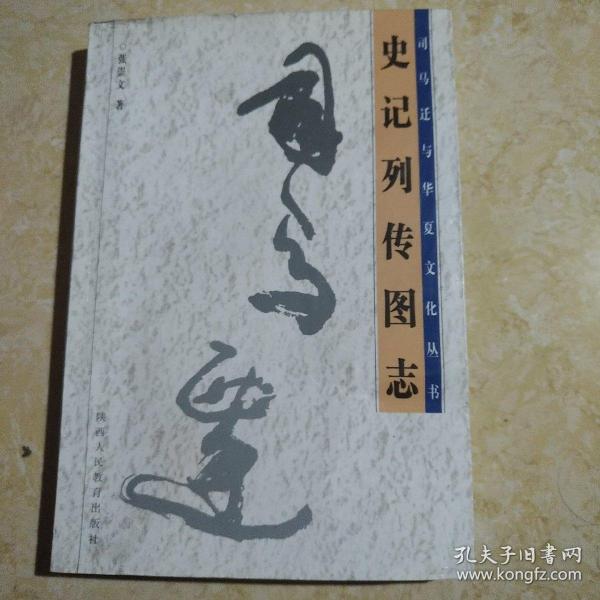 司马迁与华夏文化丛书
史记列传图志
司马迁
张崇文 著
陕西人民教育出版社
孔夫子旧书网
www.kongfz.com